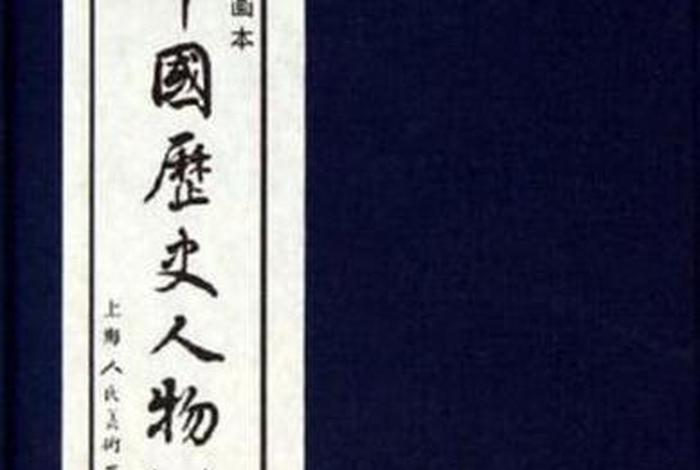 画本
中國歷史人物
上海人民美術